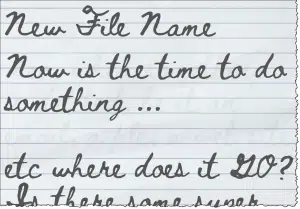 New File Name
Now is the time to do
something ...
etc where does it GO?
Is there some super